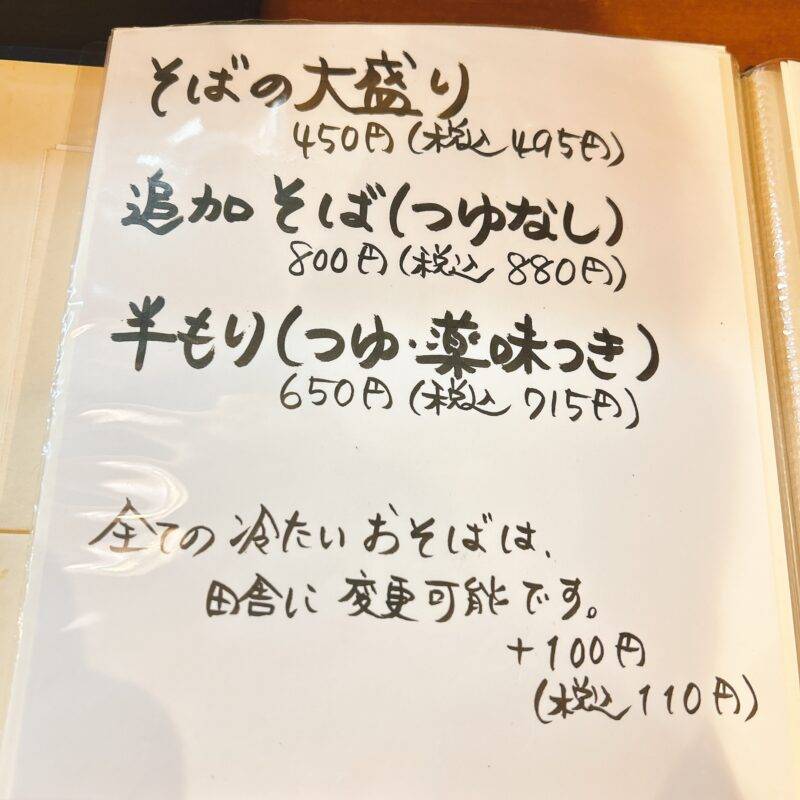 そばの大盛り
450円(税込 495円)
追加そば(つゆなし)
800円(税込 880円)
半もり(つゆ·薬味つき)
650円(税込 715円)
全ての冷たいおそばは、
田舎に変更可能です。
+100円
(税込110円)